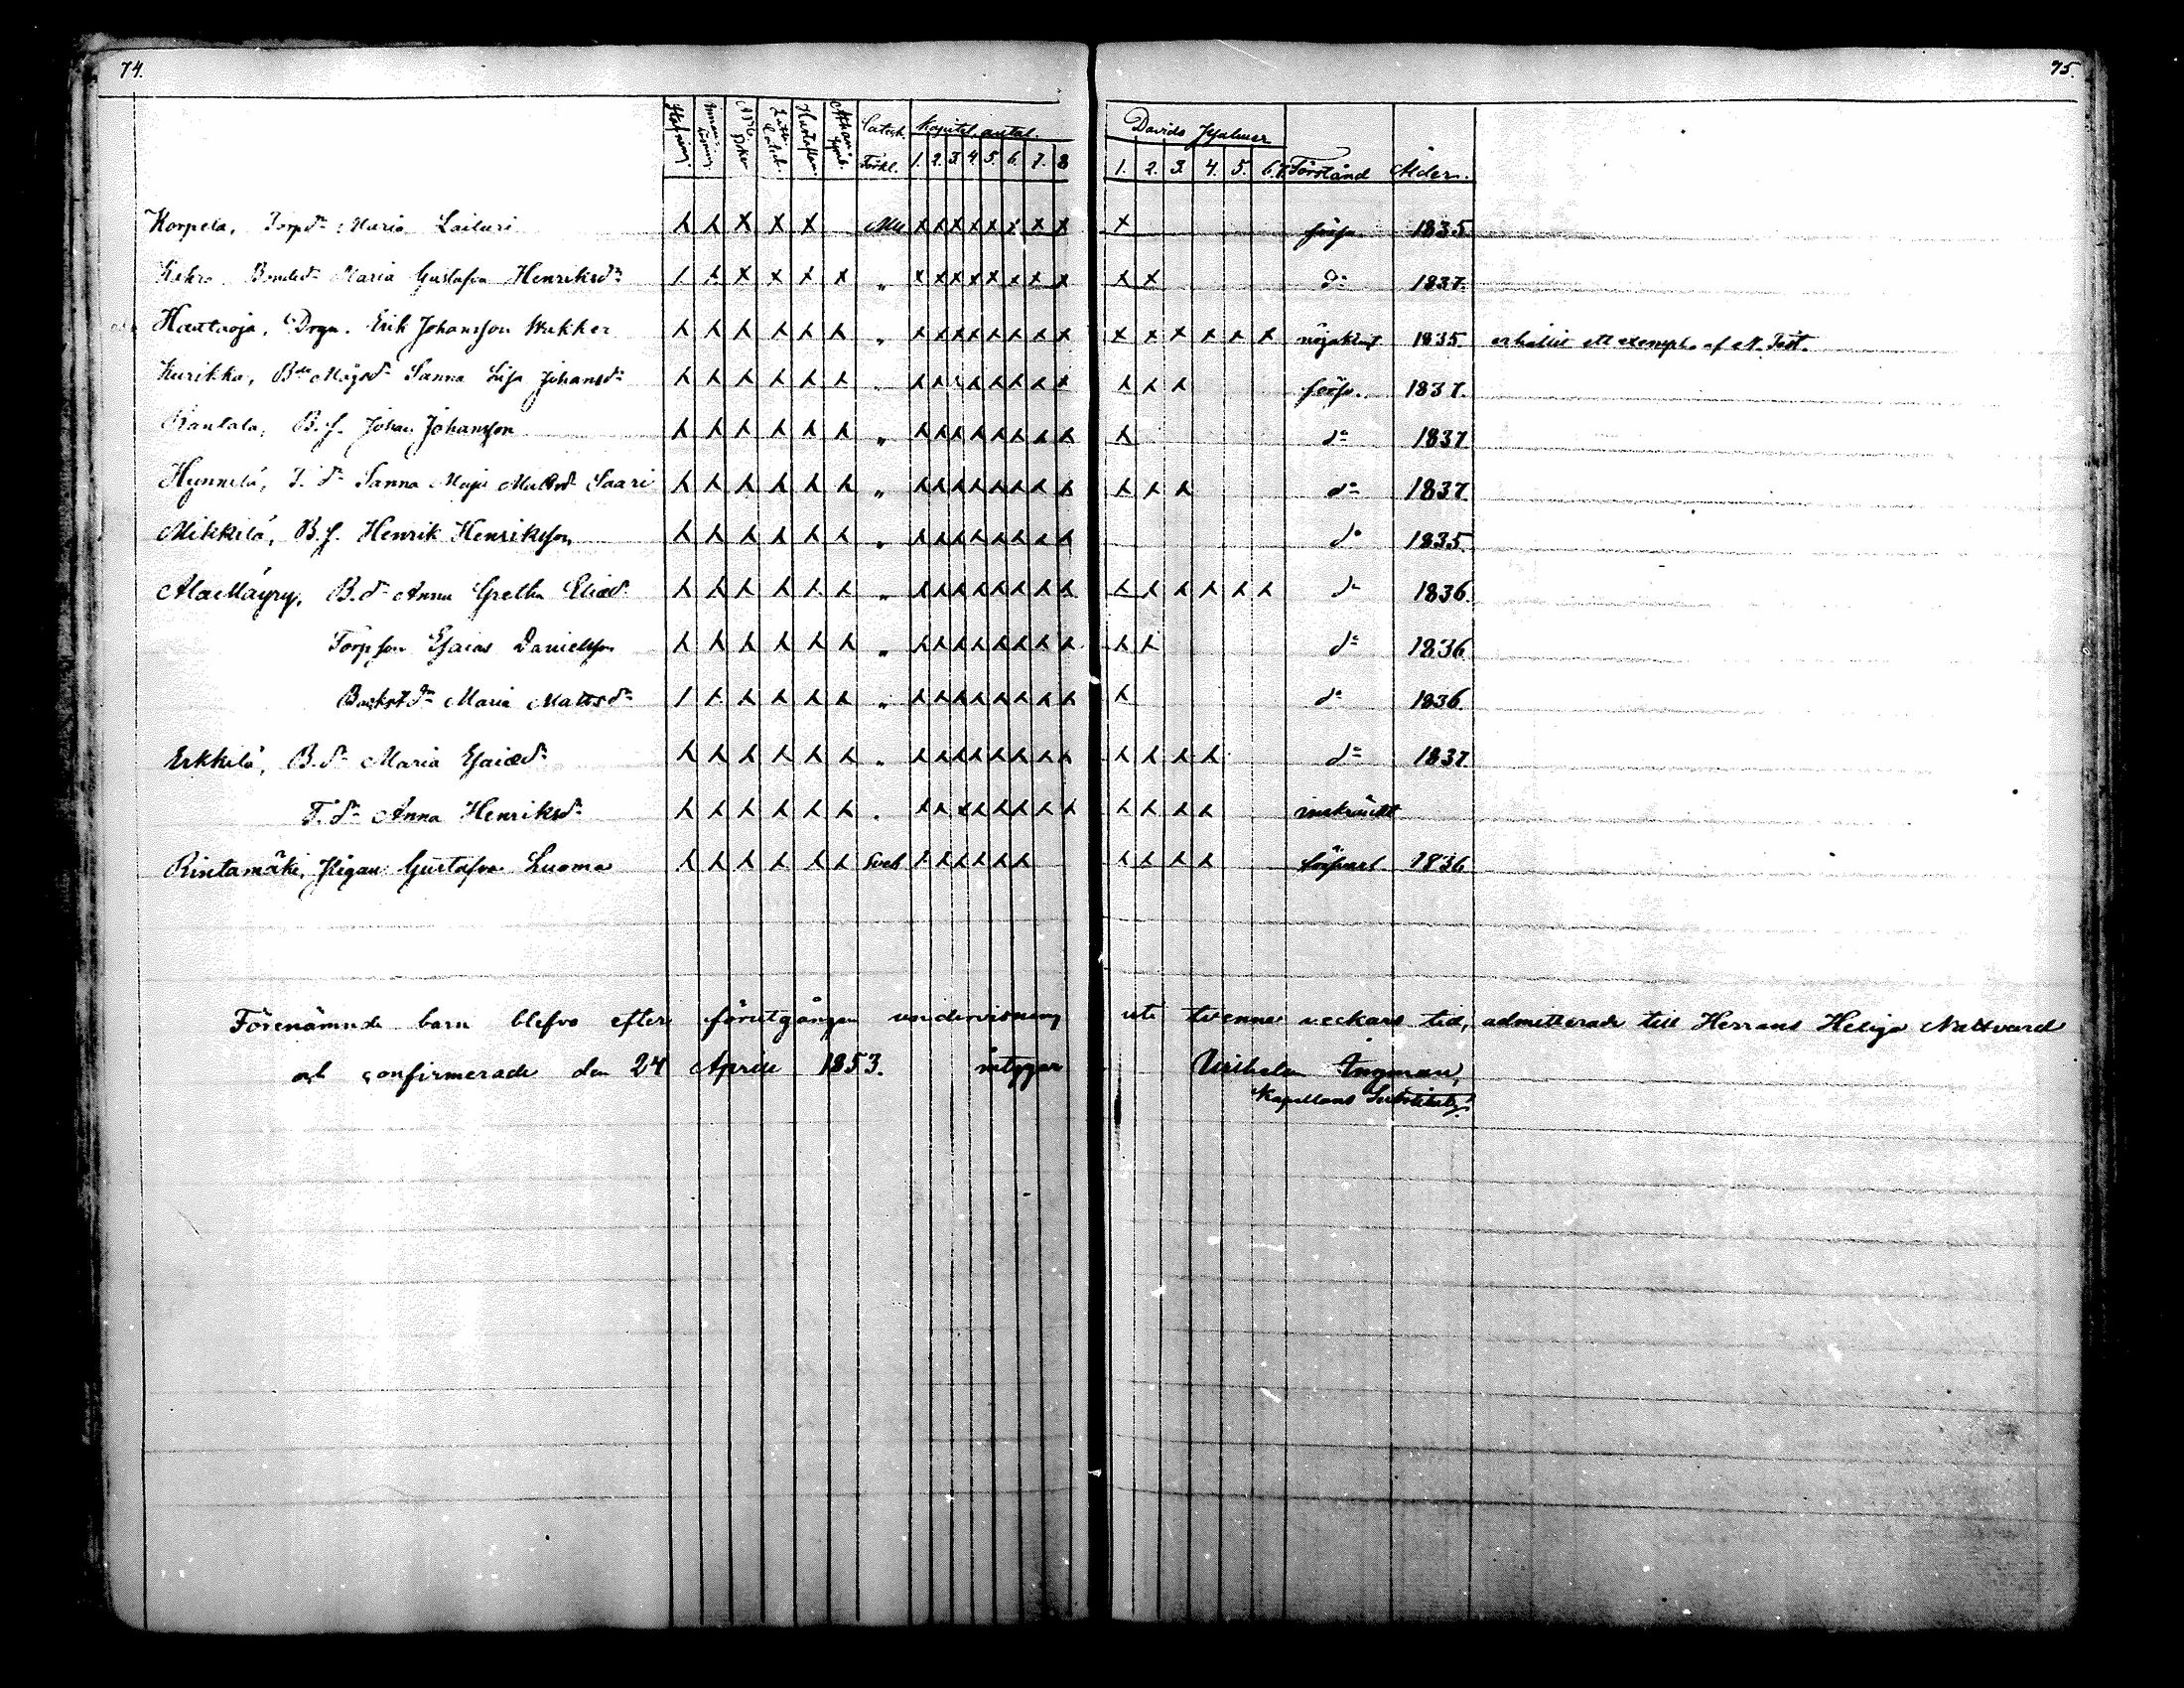 74.
75.
Stafning
Catech. Förkl.
Kapitel antal.
1. 2. 3. 4. 5. 6. 7. 8
Davids Psalmer
1. 2. 3. 4. 5. 6.7.
Förstånd
Ålder.
Korpela, Torpdr Maria Lailuri x x x x x x x x x x x x x x 1835
Bondedr Maria Gustafva Henriksdr x x x x x x x x x x x x x x x x do 1837.
Hautaoja, Drgn. Erik Johansson Wukker x x x x x x " x x x x x x x x x x x x x x nöjaktigt 1835. erhållit ett exempl. af N. Test.
Kurikka, Sanna Lisa Johansdr x x x x x x " x x x x x x x x x x x 1837.
Rantala, B.s. Johan Johansson x x x x x x " x x x x x x x x x do 1837
Hynnilä, T. dr Sanna Maja Mattsdr Saari x x x x x x " x x x x x x x x x x x do 1837.
Mikkilä, B.s. Henrik Henriksson x x x x x x " x x x x x x x x do 1835.
AlaMäyry, B.dr Anna Gretha Eliædr x x x x x x " x x x x x x x x x x x x x x do 1836.
Torpson Esaias Danielsson x x x x x x " x x x x x x x x x x do 1836
Backstdr Maria Mattsdr x x x x x x " x x x x x x x x x do 1836.
Erkkilä, B.dr Maria Esaiædr x x x x x x " x x x x x x x x x x x x do 1837
T.dr Anna Henriksdr x x x x x x " x x x x x x x x x x x x inskränkt
Rintamäki, Pigan Gustafva Luoma x x x x x x Sveb x x x x x x x x x x försvarl. 1836
Förenämnde barn blefvo efter förutgången undervisning uti tvenne veckars tid, admitterade till Herrans Heliga Nattvard
och confirmerade den 24 Aprill 1853. intygar Wilhelm Ingman,
Kapellans Substitut.